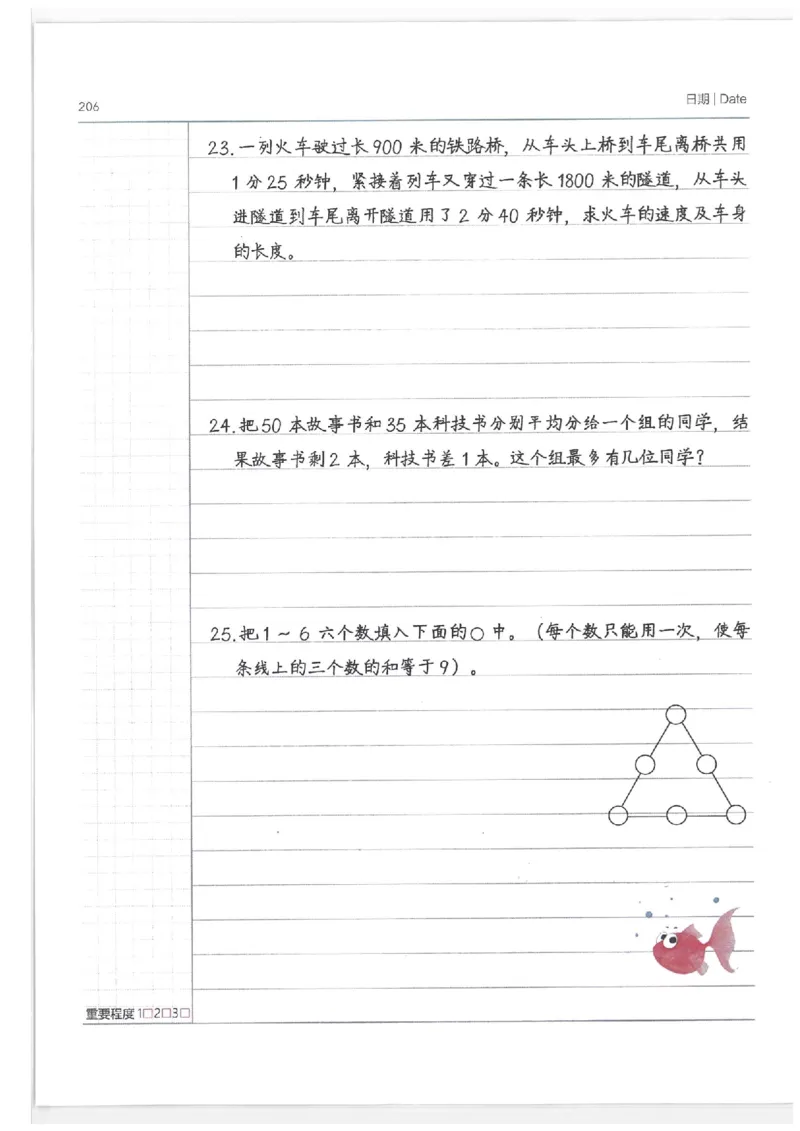 206
日期 | Date
23. 一列火车驶过长 900 米的铁路桥，从车头上桥到车尾离桥共用
1 分 25 秒钟，紧接着列车又穿过一条长 1800 米的隧道，从车头
进隧道到车尾离开隧道用了 2 分 40 秒钟，求火车的速度及车身
的长度。
24. 把 50 本故事书和 35 本科技书分别平均分给一个组的同学，结
果故事书剩 2 本，科技书差 1 本。这个组最多有几位同学？
25. 把 1 ~ 6 六个数填入下面的○中。（每个数只能用一次，使每
条线上的三个数的和等于 9）。
重要程度 1□2□3□